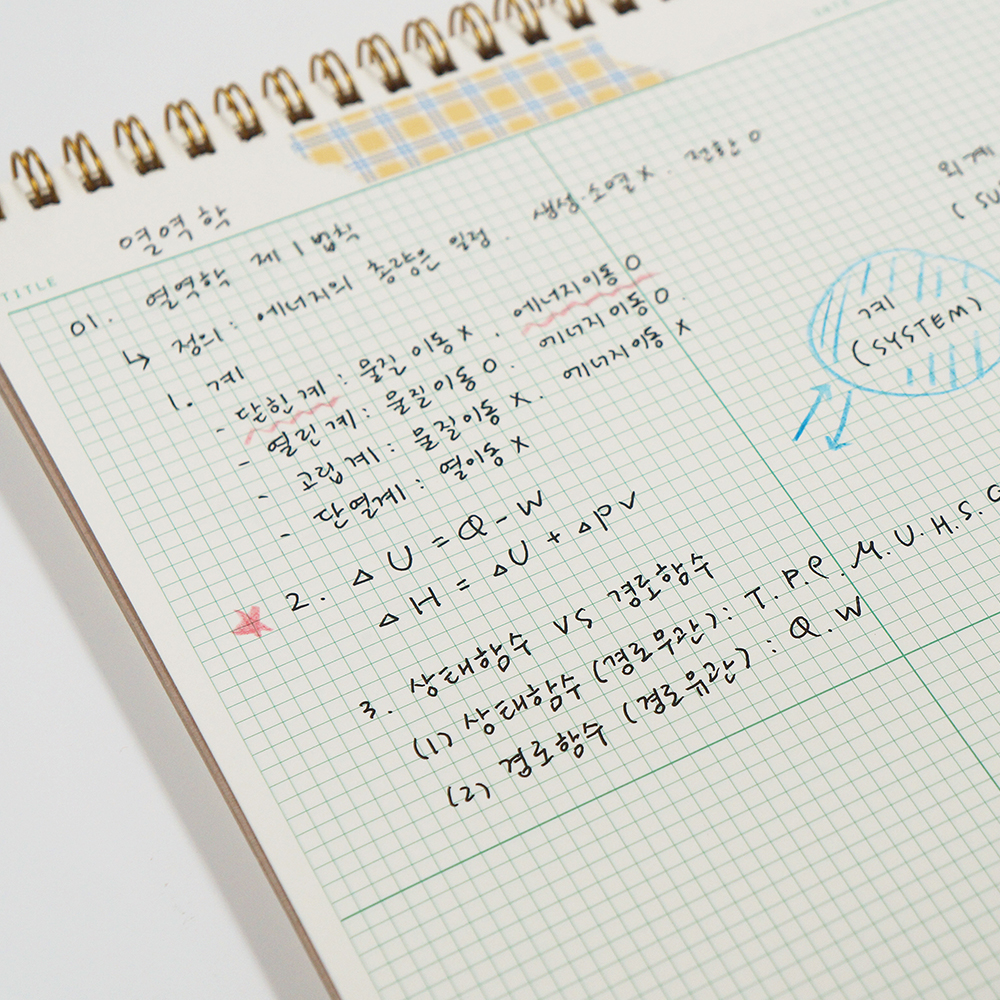 열역학
TITLE
01. 열역학 제 1 법칙
↳ 정의 : 에너지의 총량은 일정. 생성·소멸 X. 전환 O
1. 계
- 닫힌계 : 물질 이동 X, 에너지이동 O
- 열린계 : 물질이동 O. 에너지이동 O.
- 고립계 : 물질이동 X. 에너지이동 X
- 단열계 : 열이동 X
2. △U = Q - W
△H = △U + △PV
3. 상태함수 VS 경로함수
(1) 상태함수 (경로무관) : T. P. ρ. M. U. H. S. G
(2) 경로함수 (경로유관) : Q. W
외계
(SU
계
(SYSTEM)